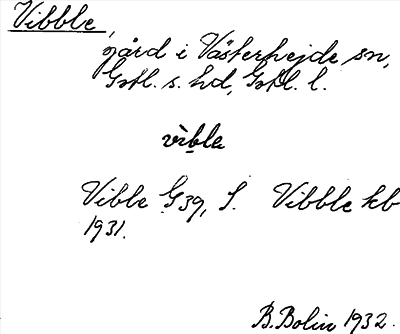 Vibble,
gård i Västerhejde sn,
Gotl. s. hd, Gotl. l.
vìbla
Vible G 39, S. Vibble kb
1931.
B. Bolin 1932.